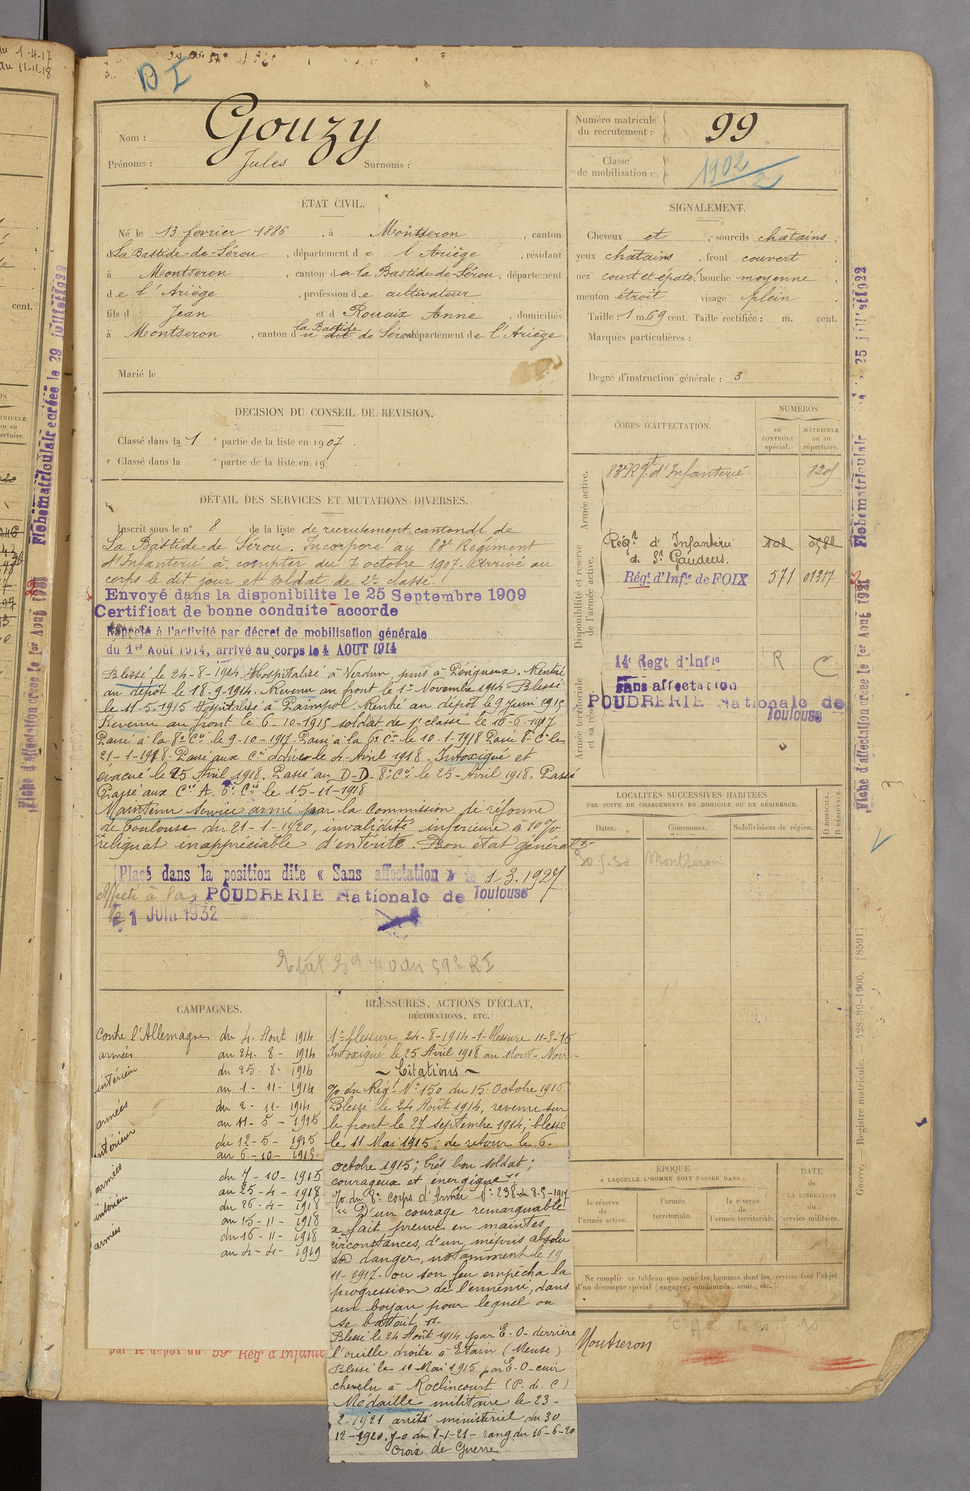 du 1-4-17
au 11-11-18
D I
Nom : Gouzy
Prénoms : Jules Surnoms :
Numéro matricule du recrutement : 99
Classe de mobilisation : 1902/2
ÉTAT CIVIL.
Né le 13 fevrier 1886, à Montseron, canton
d La Bastide-de-Sérou, département de l'Ariège, résidant
à Montseron, canton de la Bastide-de-Sérou, département
de l'Ariège, profession de cultivateur
fils d Jean et d Rouaix Anne, domiciliés
à Montseron, canton d la Bastide de Sérou département de l'Ariège
Marié le
SIGNALEMENT.
Cheveux et, sourcils châtains,
yeux châtains, front couvert
nez court et épaté, bouche moyenne
menton étroit visage plein
Taille : 1 m 69 cent. Taille rectifiée : m. cent.
Marques particulières :
Degré d'instruction générale : 3
DÉCISION DU CONSEIL DE RÉVISION.
Classé dans la 1e partie de la liste en 1907.
Classé dans la e partie de la liste en 19
DÉTAIL DES SERVICES ET MUTATIONS DIVERSES.
Inscrit sous le n° 8 de la liste de recrutement cantonal de
La Bastide de Sérou. Incorporé au 83e Régiment
d'Infanterie à compter du 7 octobre 1907. Arrivé au
corps le dit jour et soldat de 2e classe.
Envoyé dans la disponibilité le 25 Septembre 1909
Certificat de bonne conduite accordé
Rappelé à l'activité par décret de mobilisation générale
du 1er Août 1914, arrivé au corps le 4 AOUT 1914
Blessé le 24-8-1914. Hospitalisé à Verdun, puis à Périgueux. Rentré
au dépôt le 18-9-1914. Revenu au front le 1er Novembre 1914 Blessé
le 11-5-1915 Hospitalisé à Paimpol. Rentré au dépôt le 9 juin 1915
Revenu au front le 6-10-1915 soldat de 1e classe le 16-6-1917
Passé à la 8e Cie le 9-10-1917 Passé à la 6e Cie le 10-1-1918 Passé 8e Cie le
21-1-1918. Passé aux Cies le 4 Avril 1918. Intoxiqué et
évacué le 25 Avril 1918. Passé au D-D. 8e Cie le 25 Avril 1918. Passé
Passé aux Cies A. 6e Cie le 15-11-1918
Maintenu service armé par la Commission de réforme
de Toulouse du 21-1-1920, invalidité inférieure à 10%
reliquat inappréciable d'entérite. Bon état général
Placé dans la position dite « Sans affectation » le 1.3.1927
Affecté à la POUDRERIE Nationale de Toulouse
le 1 JUIN 1932
CORPS D'AFFECTATION.
NUMÉROS
AU CONTRÔLE spécial.
MATRICULE ou au répertoire.
Armée active.
83e Rgt d'Infanterie 8205
Disponibilité et réserve de l'armée active.
Régt d'Infanterie
de St Gaudens.
Régt d'Infie de FOIX 571 01217
Armée territoriale et sa réserve
14e Regt d'Infie R C
Sans affectation
POUDRERIE Nationale de
Toulouse
LOCALITÉS SUCCESSIVES HABITÉES
PAR SUITE DE CHANGEMENTS DE DOMICILE OU DE RÉSIDENCE.
Dates. Communes. Subdivisions de région. D DOMICILE. R RÉSIDENCE.
Montseron
CAMPAGNES.
Contre l'Allemagne du 4 Aout 1914
armées au 24-8-1914
intérieur du 25-8-1914
au 1-11-1914
armées du 2-11-1914
au 11-5-1915
intérieur du 12-5-1915
au 6-10-1915
armées du 7-10-1915
au 25-4-1918
intérieur du 26-4-1918
au 15-11-1918
armées du 16-11-1918
au 4-4-1919
BLESSURES, ACTIONS D'ÉCLAT,
DÉCORATIONS, ETC.
1e blessure 24-8-1914-1 blessure 11-5-15
Intoxiqué le 25 Avril 1918 au Mont-Noir-
Citations
O/ du Régt N° 150 du 15 Octobre 1916.
Blessé le 24 Août 1914, revenu sur
le front le 21 septembre 1914; blessé
le 11 Mai 1915; de retour le 6-
octobre 1915; très bon soldat;
courageux et énergique"
O/ du 8e corps d'Armée N° 238 du 8-5-1917
"D'un courage remarquable
a fait preuve en maintes
circonstances, d'un mépris absolu
du danger, notamment le 19
11-1917- ou son feu empêcha la
progression de l'ennemi, dans
un boyau pour lequel on
se battait"
Blessé le 24 Août 1914 par E-O- derrière
l'oreille droite à Etain (Meuse)
Blessé le 11 Mai 1915 par E-O-cuir
chevelu à Roclincourt (P. de C)
Médaille militaire le 23-
2-1921 arrêté ministériel du 30
12-1920. J-O du 8-1-21- rang du 16-6-20
Croix de Guerre
ÉPOQUE
À LAQUELLE L'HOMME DOIT PASSER DANS :
la réserve de l'armée active.
l'armée territoriale.
la réserve de l'armée territoriale
DATE DE LA LIBÉRATION du service militaire.
Ne remplir ce tableau que pour les hommes dont les services font l'objet
d'un décompte spécial (engagés, condamnés, omis, etc.).
Montseron
par le dépôt du 59e Régt d'Infanterie
Fiche matriculaire créée le 29 juillet 1922
Fiche d'affectation créée le 1er Août 1921
Fiche matriculaire 25 juillet 1922
Fiche d'affectation créée le 1er Août 1921
Guerre. Registre matricule. 128-89-1906. [8591]